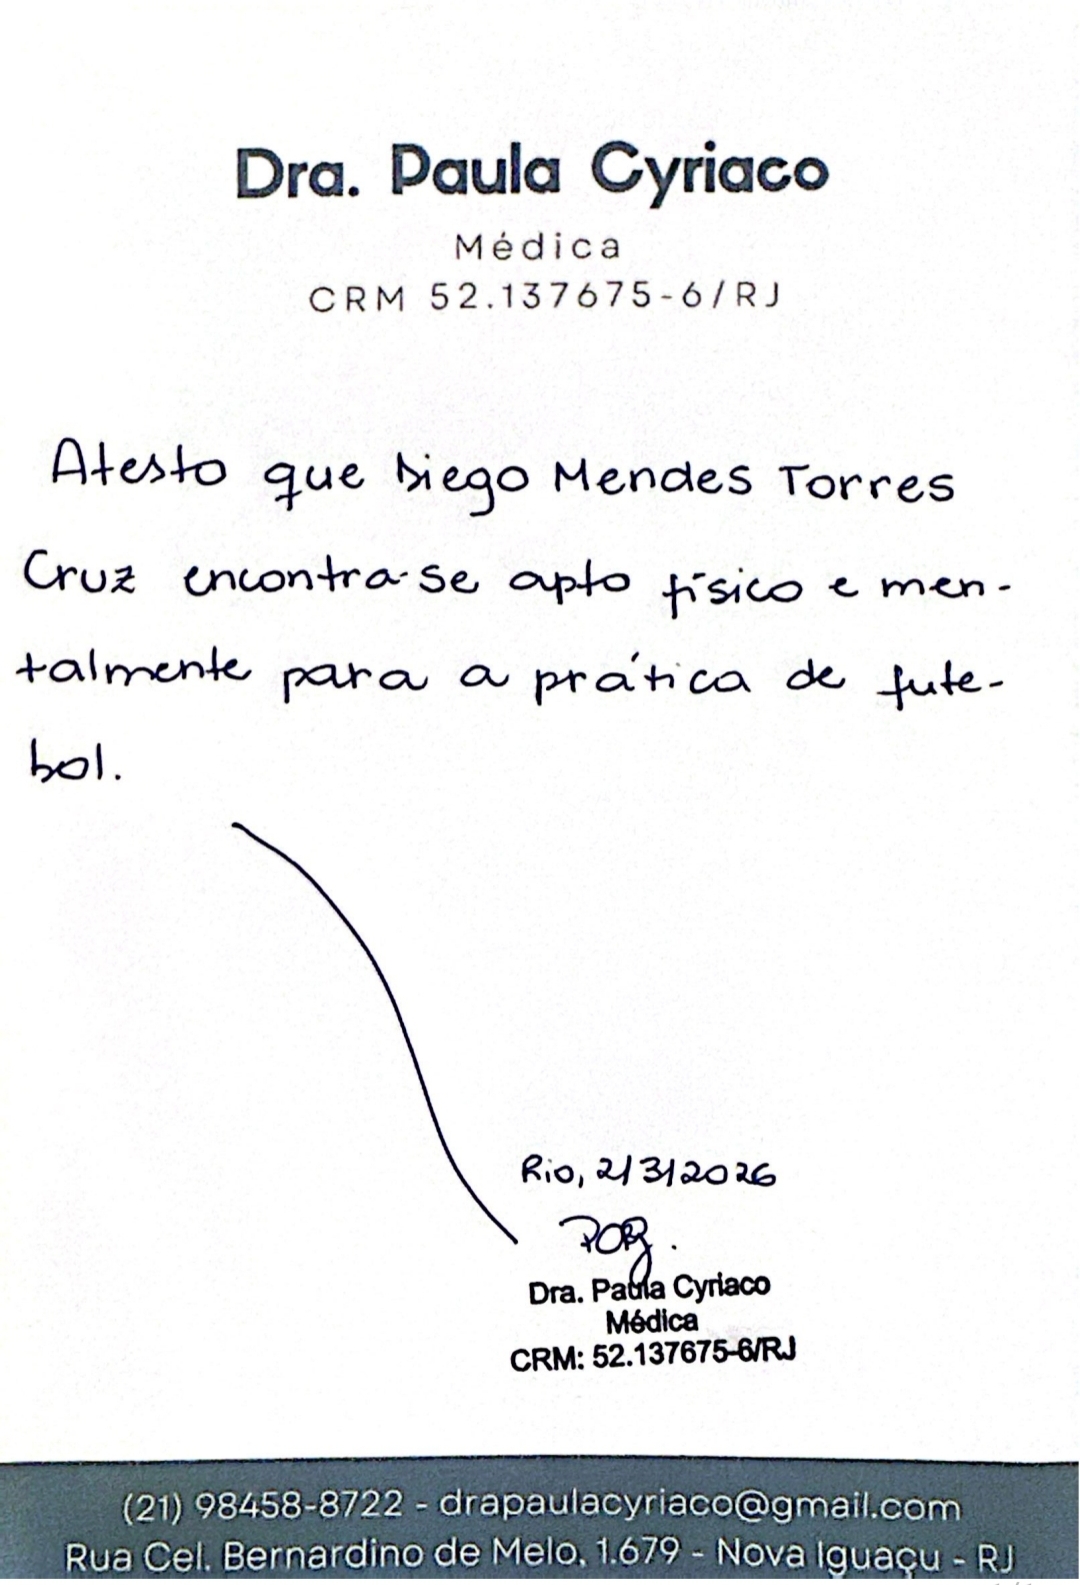 Dra. Paula Cyriaco
Médica
CRM 52.137675-6/RJ
Atesto que Diego Mendes Torres
Cruz encontra-se apto físico e men-
talmente para a prática de fute-
bol.
Rio, 2/3/2026
Dra. Paula Cyriaco
Médica
CRM: 52.137675-6/RJ
(21) 98458-8722 - drapaulacyriaco@gmail.com
Rua Cel. Bernardino de Melo, 1.679 - Nova Iguaçu - RJ